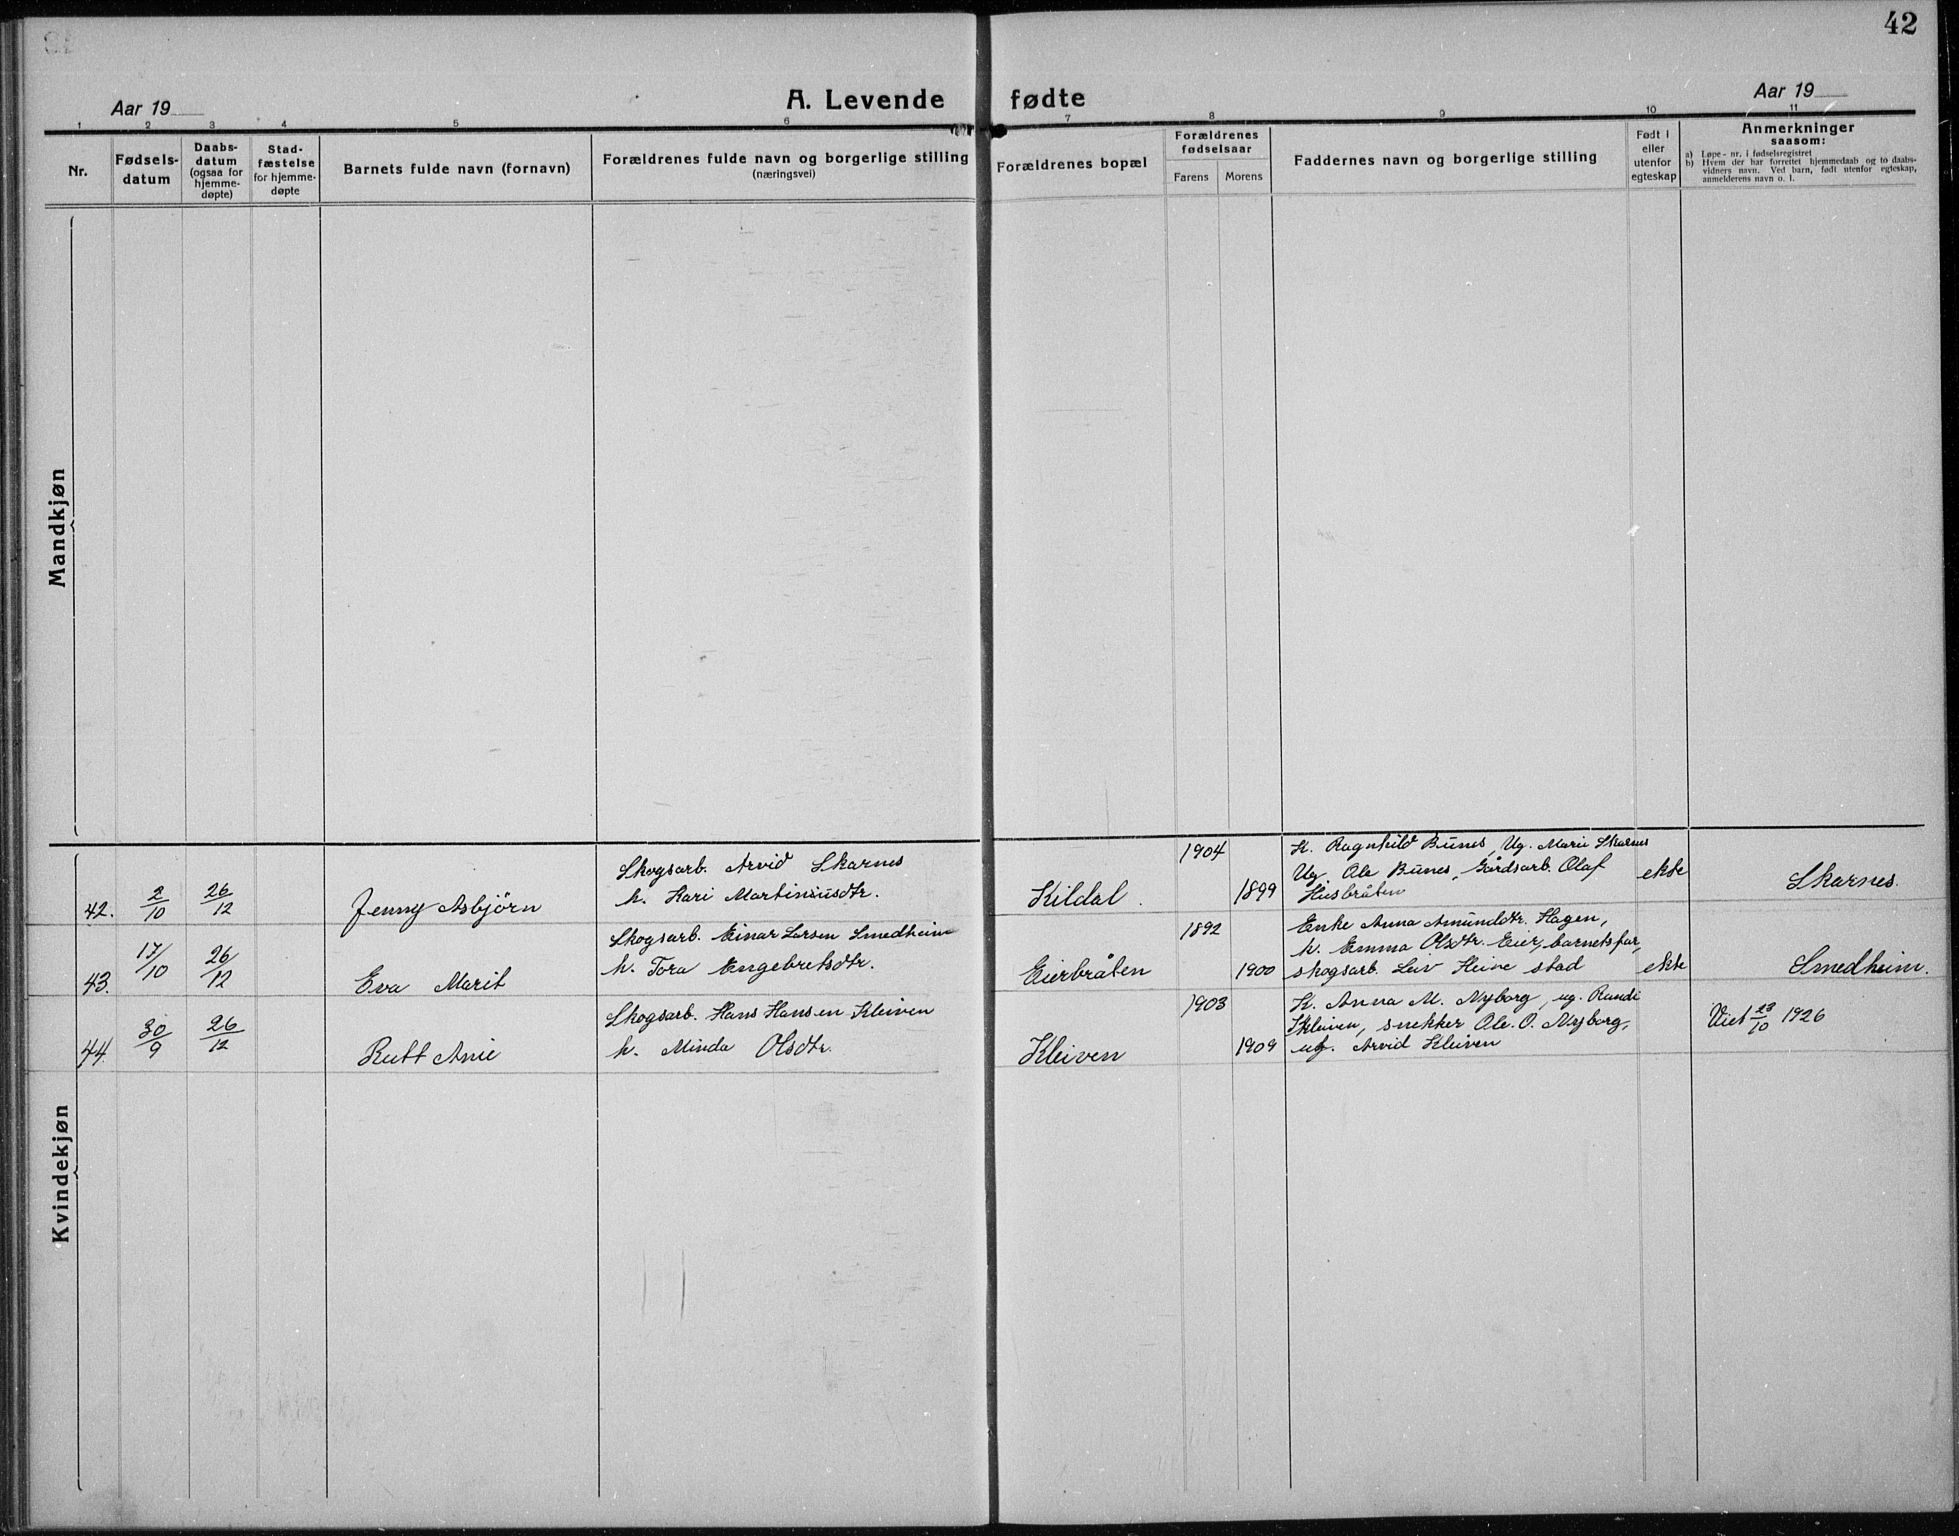 42
Aar 19
A. Levende fødte
Aar 19
1 2 3 4 5 6 7 8 9 10 11
Nr.
Fødsels-
datum
Daabs-
datum
(ogsaa for
hjemme-
døpte)
Stad-
fæstelse
for hjemme-
døpte
Barnets fulde navn (fornavn)
Forældrenes fulde navn og borgerlige stilling
(næringsvei)
Forældrenes bopæl
Forældrenes
fødselsaar
Farens Morens
Faddernes navn og borgerlige stilling
Født i
eller
utenfor
egteskap
Anmerkninger
saasom:
a) Løpe-nr. i fødselsregistret
b) Hvem der har forrettet hjemmedaab og to daabs-
vidners navn. Ved barn, født utenfor egteskap,
anmelderens navn o. l.
Mandkjøn
Kvindekjøn
42. 2/10 26/12 Jenny Asbjörn
Skogsarb. Arvid Skarnes
h. Kari Martiniusdtr.
Kildal.
1904
1899
K. Ragnhild Bunes, Ug. Marie Skarnes
Ug. Ole Bunes, Gårdsarb. Olaf
Husbråten
ekte
Skarnes.
43. 17/10 26/12 Eva Marit
Skogsarb. Einar Larsen Smedheim
h. Tora Engebretsdtr.
Eierbråten
1892
1900
Enke Anna Amunddtr. Hagen,
k. Emma Olsdtr. Eier, barnets far,
skogsarb. Leiv Heine stad
ekte
Smedheim.
44. 30/9 26/12 Rutt Anie
Skogsarb. Hans Hansen Kleiven
h. Minda Olsdtr.
Kleiven
1903
1909
K. Anna M. Nyborg, ug. Randi
Kleiven, snekker Ole. O. Nyborg,
ug. Arvid Kleiven
Viet 23/10 1926